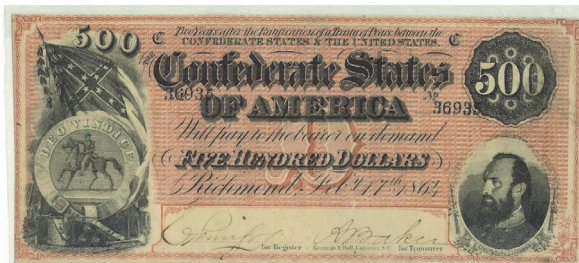 500
Two Years after the Ratification of a Treaty of Peace between the
CONFEDERATE STATES & THE UNITED STATES.
C C
THE
Confederate States
36935 No 36935
500
OF AMERICA
Will pay to the bearer on demand
FIVE HUNDRED DOLLARS
Richmond, Feby 17th 1864
DEO VINDICE
for Register
for Treasurer